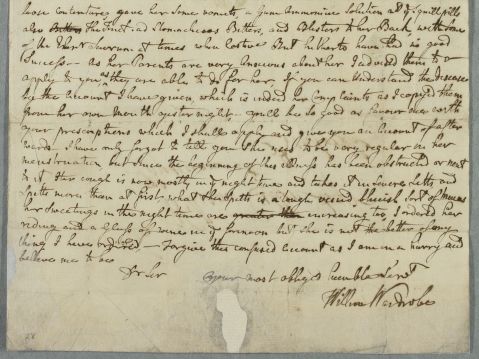 these Concerting gave her some vomits, a Gum Ammoniac Solution and of Squill pills
also Bitters The Tinct: and Stomacheous Bitters, and Blisters to her Back, with some
of the Elect: Lenium at times when Costive But hitherto have had no good
Success - As her Parents are very Anxious about her I advised them to
apply to you as they are able to do for her, if you can Understand the disease
by the Account I have given, which is indeed her Complaints as I copyed them
from her own Mouth yester night. youll be so good as favour me with
your prescriptions which I shall apply and give you an Account of after
wards. I have only forgot to tell you She used to be very regular in her
menstruation but since the beginning of this illness has been obstructed or next
to it Her cough is now mostly in night time and takes it in severe fitts and
Spitts more than at first what she spitts is a tough viscid blueish sort of mucus
her sweetings in the night time are greater than increasing too, I ordered her
riding and a Glass of wine in forenoon but she is not the better of any
thing I have ordered - Forgive this confused account as I am in a hurry and
believe me to be
Dr Sir your most obliged humble Servt
William Wardrobe